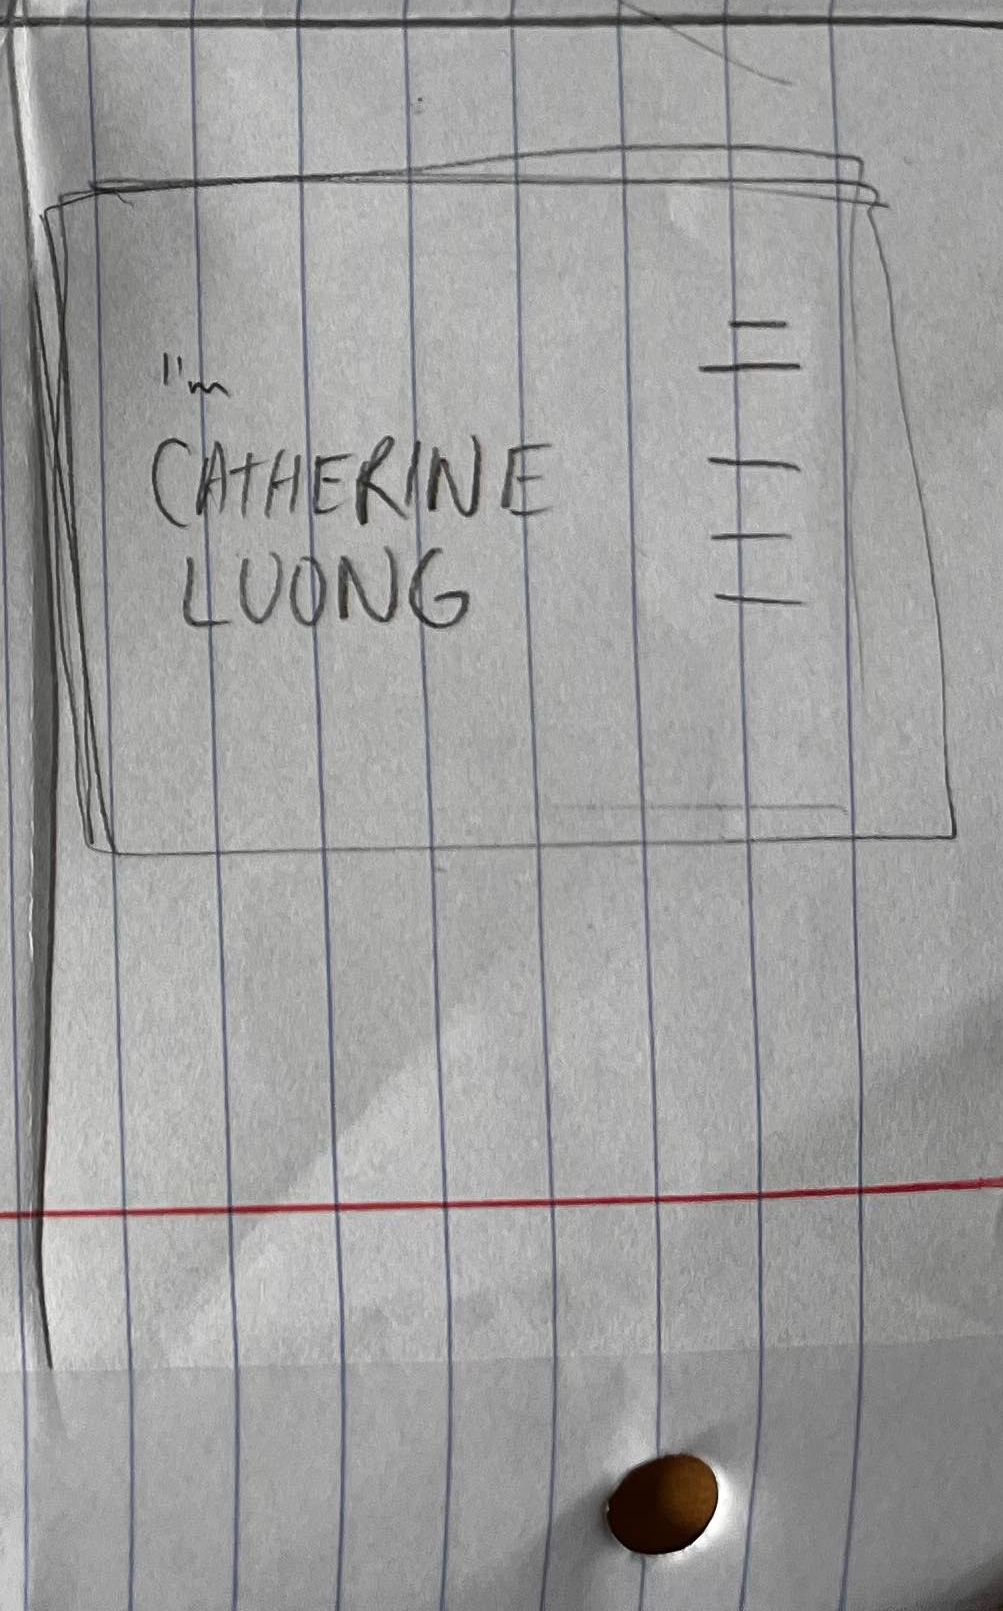 I'm
CATHERINE
LUONG